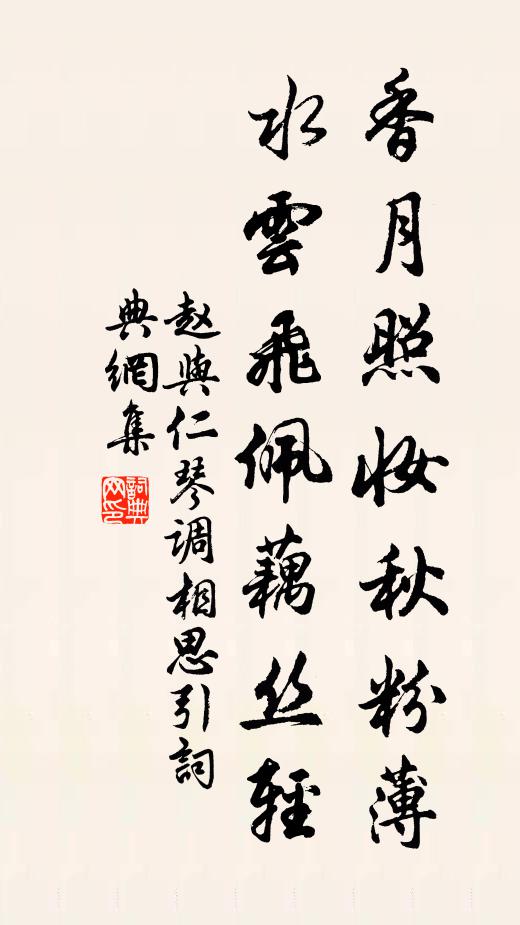 香月照妝秋粉薄
水雲飛佩藕丝輕
赵與仁琴调相思引詞
典網集
詞典網印